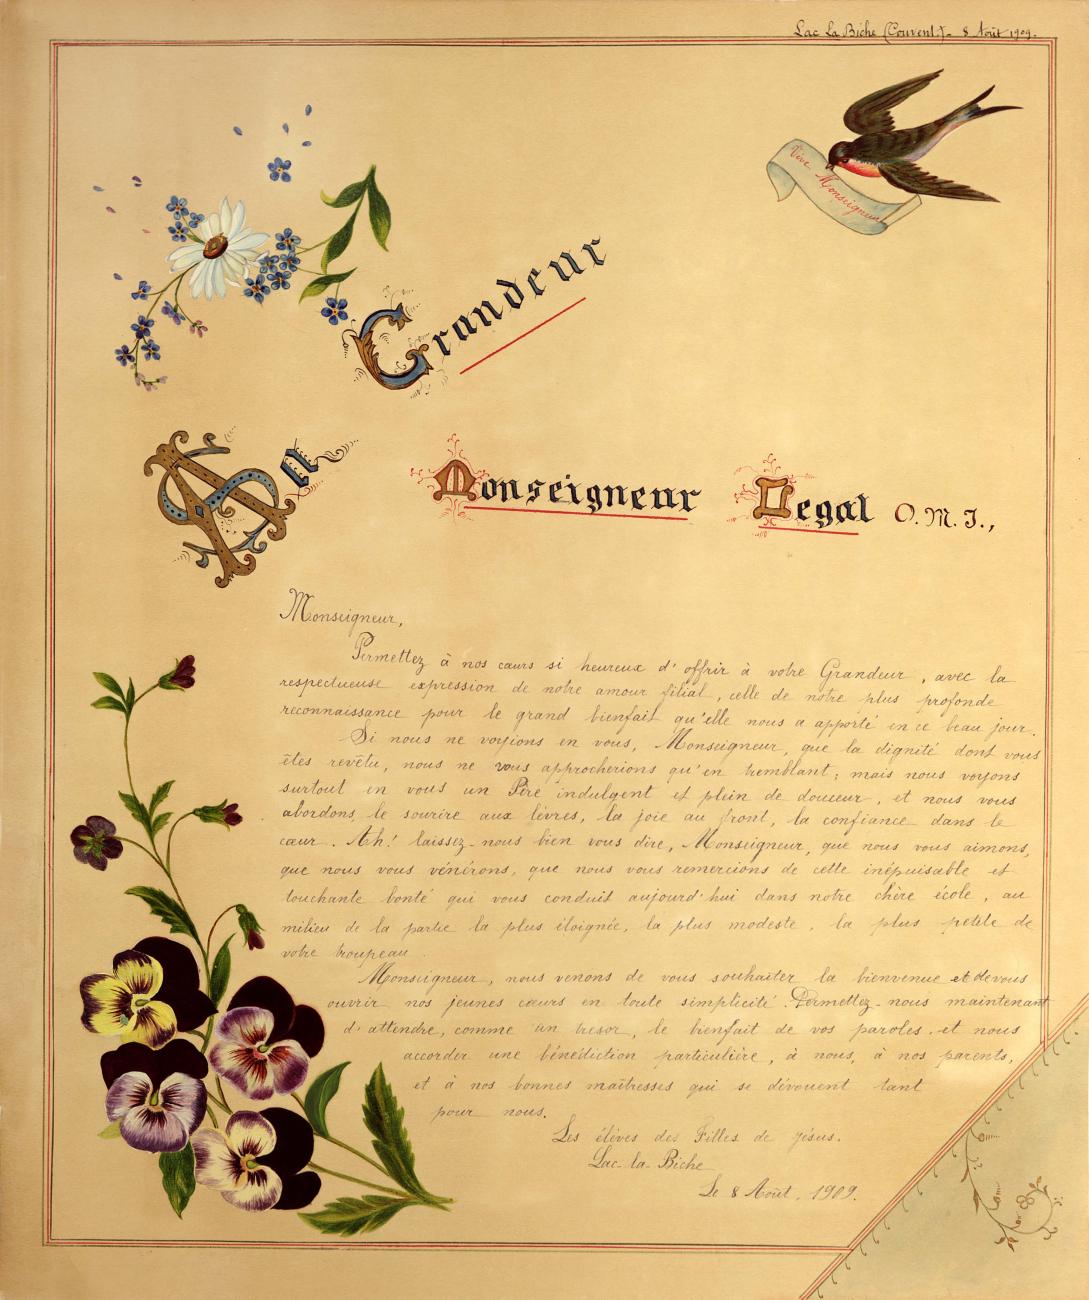 Lac La Biche (Couvent.) - 8 Août 1909.
Vive Monseigneur
A Sa Grandeur
Monseigneur Legal O.M.I.,
Monseigneur,
Permettez à nos cœurs si heureux d'offrir à votre Grandeur, avec la
respectueuse expression de notre amour filial, celle de notre plus profonde
reconnaissance pour le grand bienfait qu'elle nous a apporté en ce beau jour.
Si nous ne voyions en vous, Monseigneur, que la dignité dont vous
êtes revêtu, nous ne vous approcherions qu'en tremblant; mais nous voyons
surtout en vous un Père indulgent et plein de douceur, et nous vous
abordons, le sourire aux lèvres, la joie au front, la confiance dans le
cœur. Ah! laissez-nous bien vous dire, Monseigneur, que nous vous aimons,
que nous vous vénérons, que nous vous remercions de cette inépuisable et
touchante bonté qui vous conduit aujourd'hui dans notre chère école, au
milieu de la partie la plus éloignée, la plus modeste, la plus petite de
votre troupeau.
Monseigneur, nous venons de vous souhaiter la bienvenue et de vous
ouvrir nos jeunes cœurs en toute simplicité. Permettez-nous maintenant
d'attendre, comme un trésor, le bienfait de vos paroles et nous
accorder une bénédiction particulière, à nous, à nos parents,
et à nos bonnes maîtresses qui se dévouent tant
pour nous.
Les élèves des Filles de Jésus.
Lac-la-Biche
Le 8 Août, 1909.